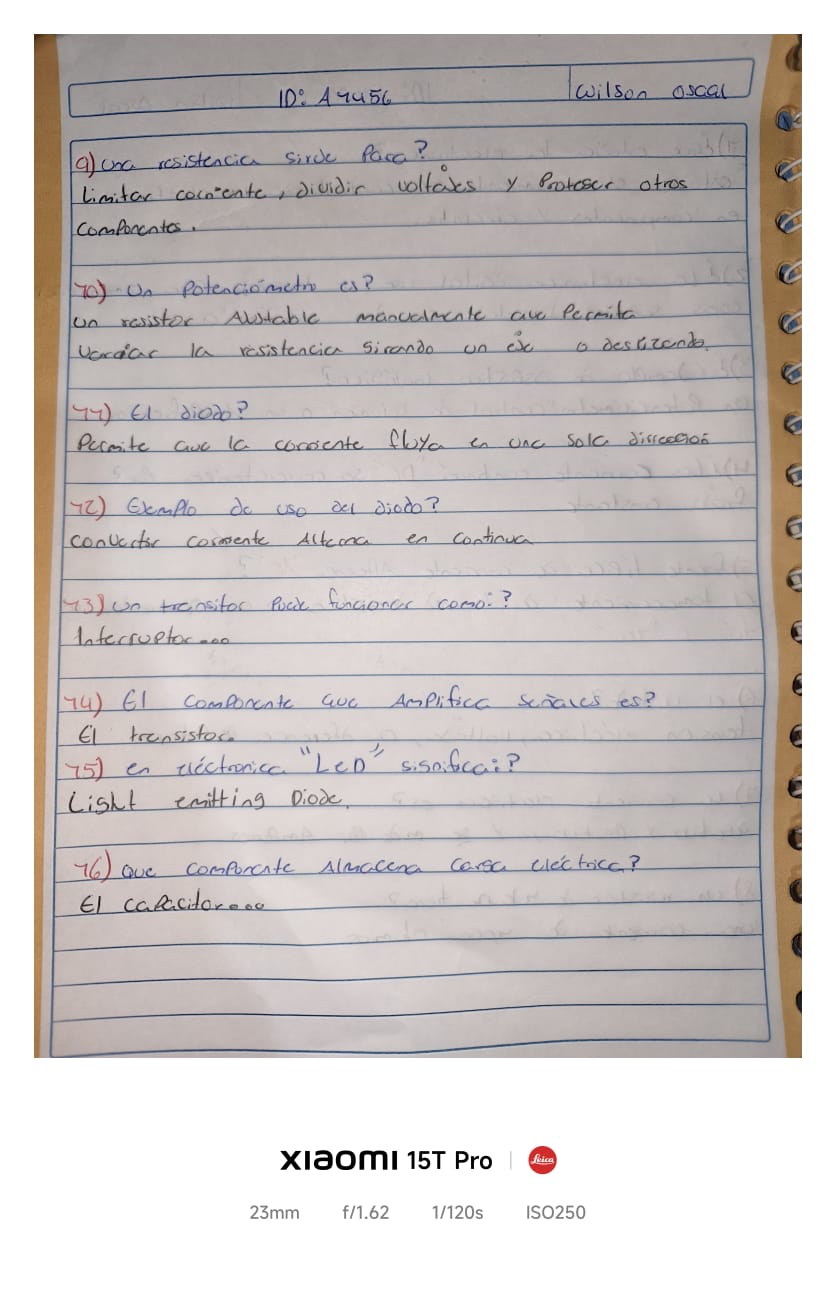 ID: A7456
Wilson Oscal
9) Una resistencia sirve Para?
Limitar corriente, dividir voltajes y Proteger otros
componentes.
10) Un Potenciómetro es?
Un resistor AJUstable manualmente que Permita
Variar la resistencia Girando un eje o deslizando.
11) El diodo?
Permite que la corriente fluya en una sola dirrección
12) Ejemplo de uso del diodo?
Convertir corriente Alterna en Continua
13) Un transitor Puede funcionar como:?
Interruptor...
14) El componente que Amplifica señales es?
El transistor.
15) en eléctronica "LeD" significa:?
Light emitting Diode.
16) Que componente Almacena Carga eléctrica?
El capacitor....
XIAOMI 15T Pro | Leica
23mm f/1.62 1/120s ISO250